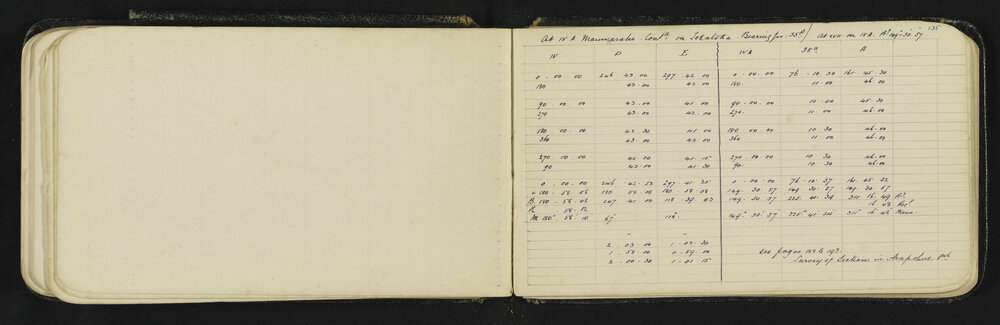 135
At IV A Maungaraho Contd on Tokatoka Bearing for 35A / At stn. on IV A. 149° 30 57
IV D E IV A 35A A
0 . 00 . 00 246 43 . 00 297 . 42 . 00 0 . 00 . 00 76 . 10 . 30 161 . 45 . 30
180 43 . 00 42 00 180 . 11 . 00 46 . 00
90 00 00 43 . 00 41 . 00 90 . 00 . 00 10 . 00 45 . 30
270 43 . 00 42 . 00 270 . 11 . 00 46 . 00
180 00 . 00 42 30 41 . 00 180 00 . 00 10 30 46 . 00
360 43 00 42 00 360 11 00 46 . 00
270 . 10 . 00 42 30 41 . 15 270 . 00 . 00 10 . 30 46 . 00
90 43 . 00 41 . 30 90 10 30 46 . 00
0 . 00 . 00 246 42 . 52 297 . 41 . 35 0 . 00 . 00 76 . 10 . 37 161 . 45 . 52
+ 180 . 58 . 08 180 58 08 180 58 . 08 149 . 30 . 57 149 30 . 57 149 . 30 . 57
B 180 . 58 . 08 247 41 . 00 118 39 . 43 149 . 30 . 57 225 . 41 . 34 311 . 16 . 49
R 58 . 12 16 . 48
M 180° 58 10 67° 118° 149° 30' 57 225° 41 34" 311° 16 . 48 Mean
2 . 03 . 00 1 . 03 . 30
1 . 58 . 00 0 . 59 . 00
2 . 00 . 30 1 . 01 . 15
See pages 188 to 193
Survey of Sections in Arapohue Psh